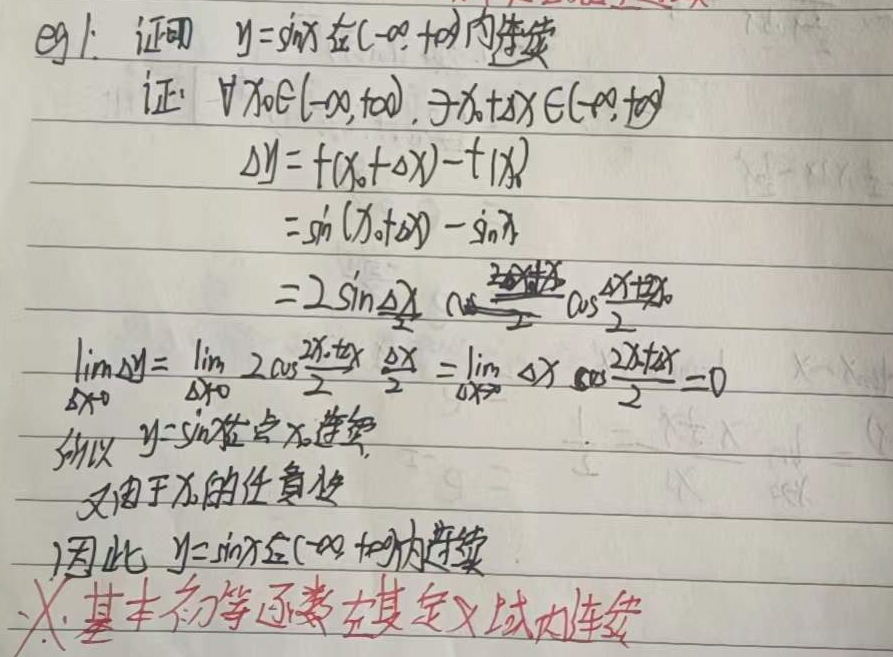 eg 1: 证明 y=sinx 在(-∞, +∞)内连续
证: ∀x₀∈(-∞,+∞), ∃x₀+Δx∈(-∞,+∞)
Δy=f(x₀+Δx)-f(x₀)
=sin(x₀+Δx)-sinx₀
=2sin Δx/2 cos (Δx+2x₀)/2
lim Δx→0 Δy= lim Δx→0 2cos (2x₀+Δx)/2 Δx/2 = lim Δx→0 Δx cos (2x₀+Δx)/2 =0
所以 y=sinx在点x₀连续.
又由于x₀的任意性
因此 y=sinx在(-∞, +∞)内连续
※.基本初等函数在其定义域内连续